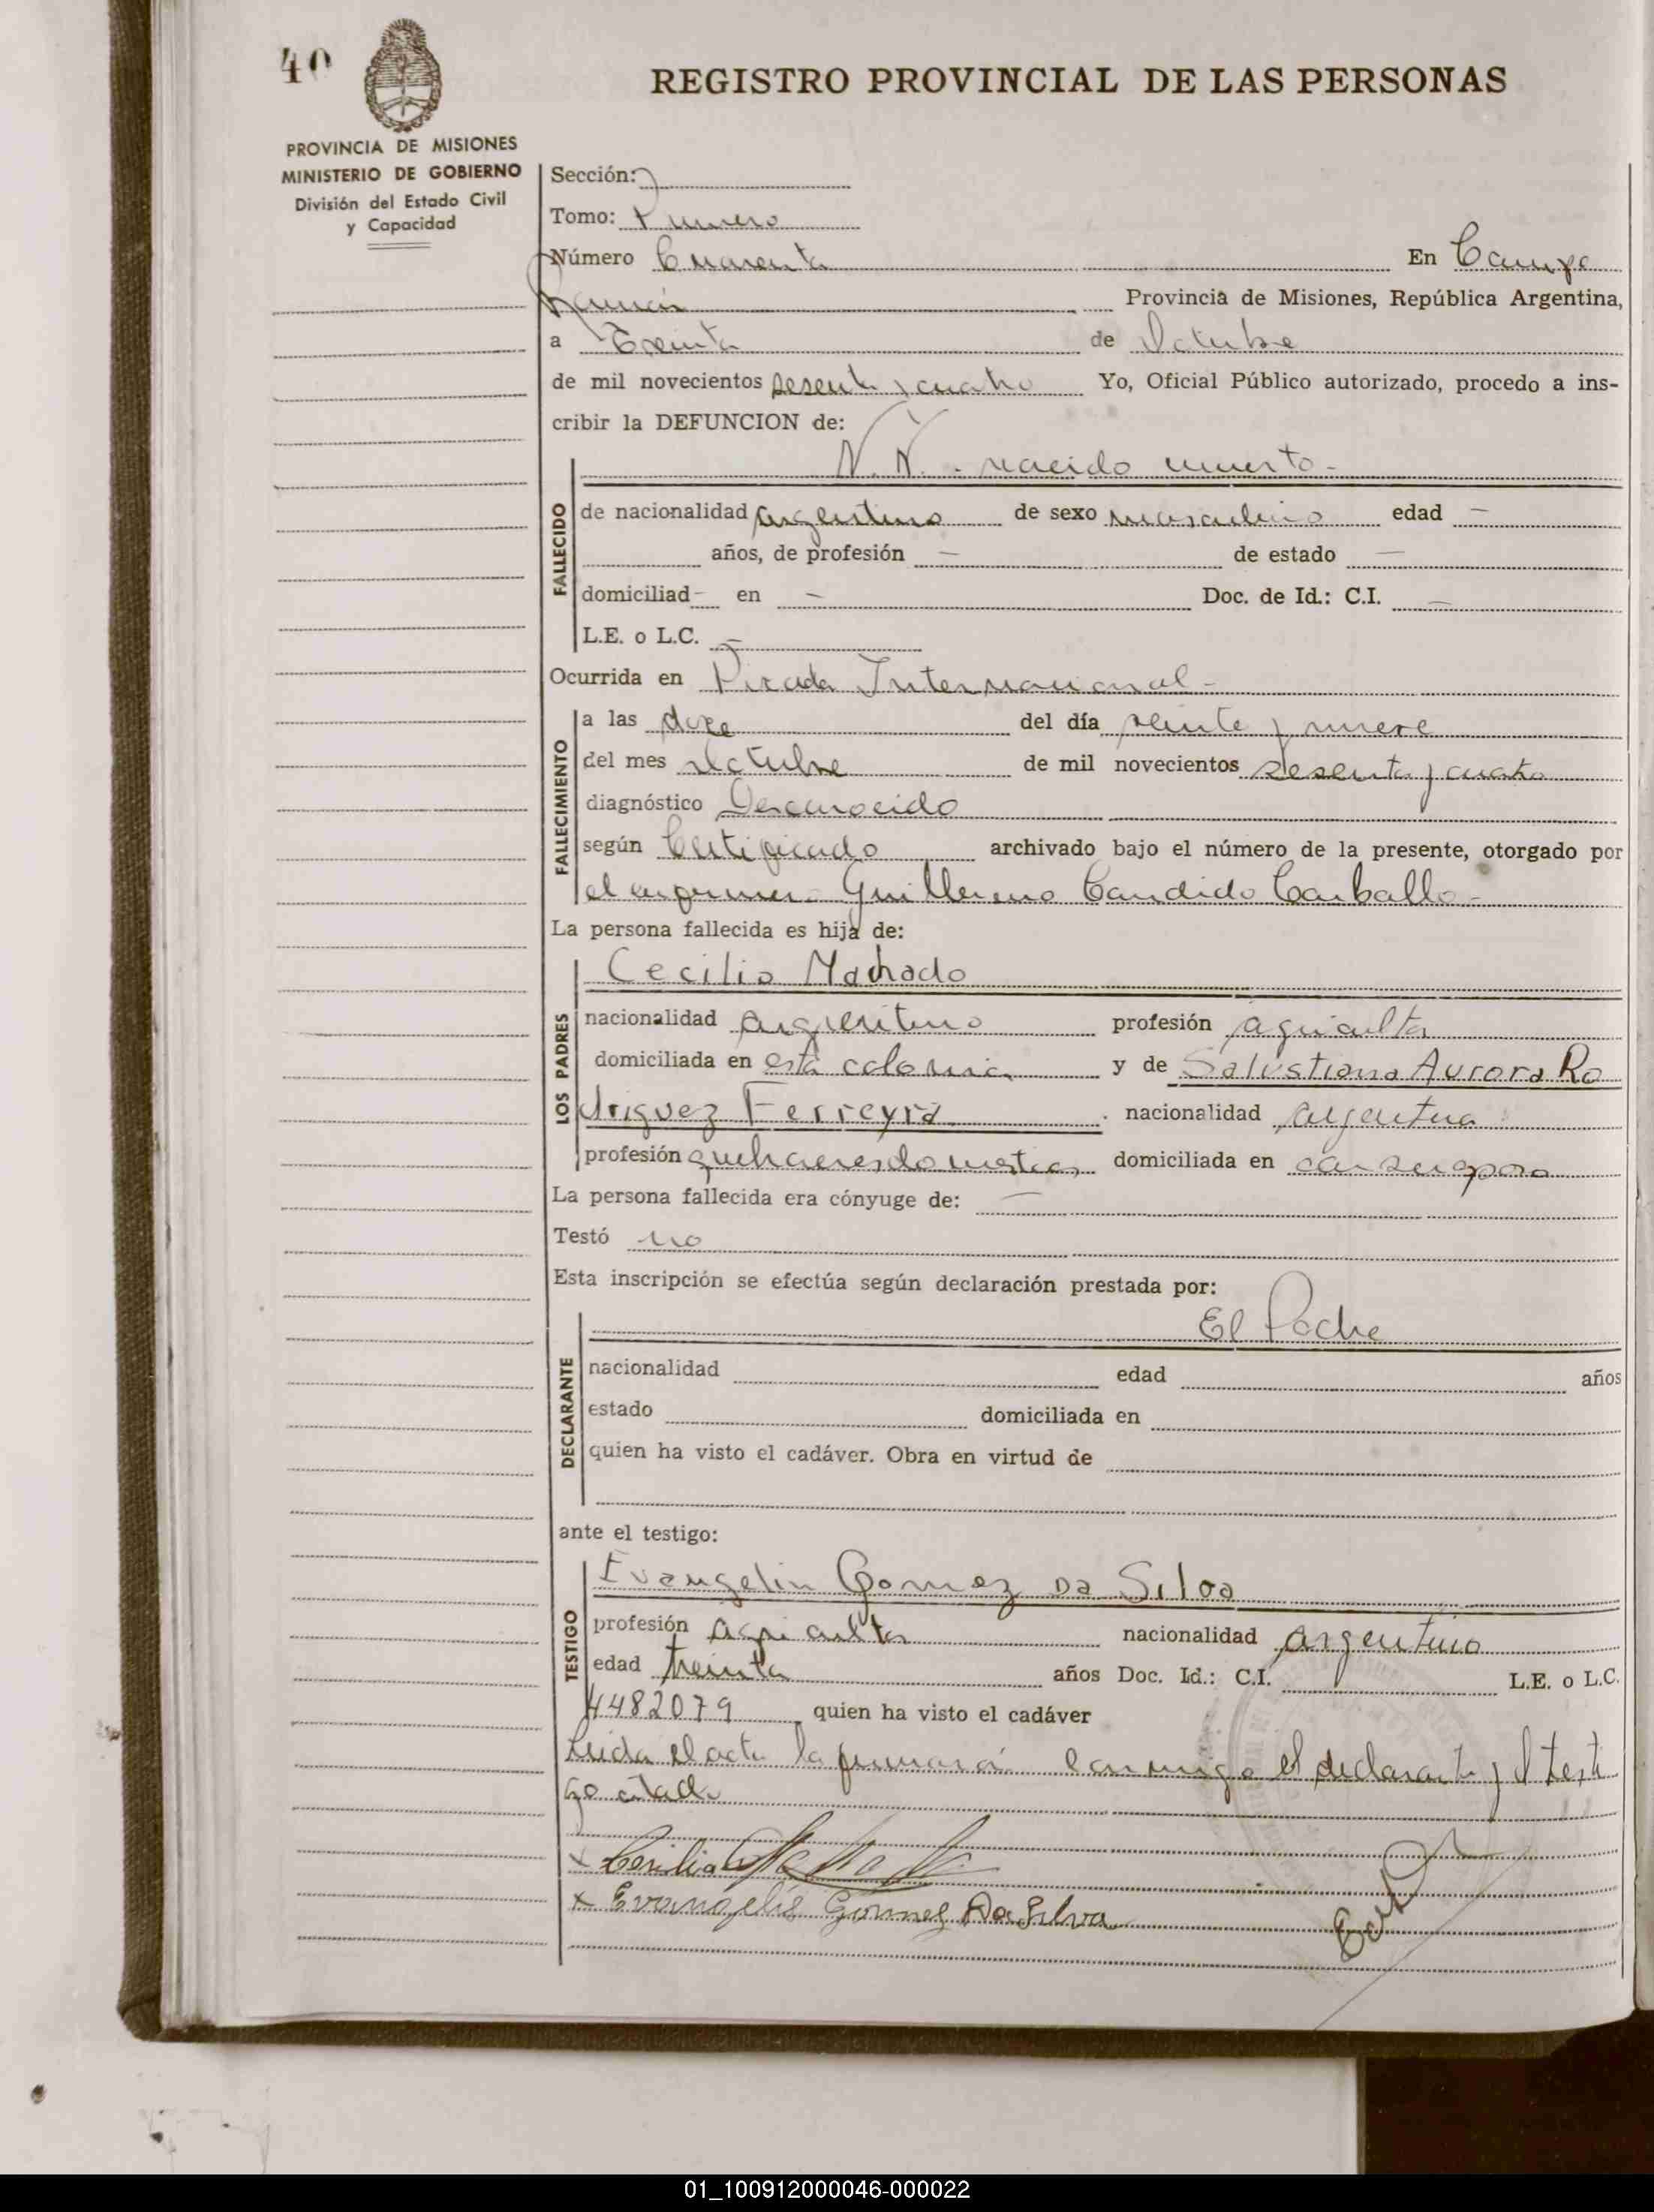 40
REGISTRO PROVINCIAL DE LAS PERSONAS
PROVINCIA DE MISIONES
MINISTERIO DE GOBIERNO
División del Estado Civil
y Capacidad
Sección:
Tomo: Primero
Número Cuarenta En Campo
Ramón Provincia de Misiones, República Argentina,
a Treinta de Octubre
de mil novecientos sesenta y cuatro Yo, Oficial Público autorizado, procedo a ins-
cribir la DEFUNCION de:
N.N. - nacido muerto -
FALLECIDO
de nacionalidad argentino de sexo masculino edad —
años, de profesión — de estado —
domiciliad - en — Doc. de Id.: C.I. —
L.E. o L.C. —
Ocurrida en Picada Internacional -
FALLECIMIENTO
a las doce del día veinte y nueve
del mes octubre de mil novecientos sesenta y cuatro
diagnóstico Desconocido
según Certificado archivado bajo el número de la presente, otorgado por
el Guillermo Candido Carballo -
La persona fallecida es hija de:
LOS PADRES
Cecilio Machado
nacionalidad argentino profesión agricultor
domiciliada en esta colonia y de Salustiana Aurora Ro
driguez Ferreyra. nacionalidad argentina
profesión quehaceres domesticos domiciliada en con su esposo
La persona fallecida era cónyuge de: —
Testó no
Esta inscripción se efectúa según declaración prestada por:
DECLARANTE
El Padre
nacionalidad edad años
estado domiciliada en
quien ha visto el cadáver. Obra en virtud de
ante el testigo:
TESTIGO
Evangelin Gomez Da Silva
profesión agricultor nacionalidad argentino
edad treinta años Doc. Id.: C.I. L.E. o L.C.
4482079 quien ha visto el cadáver
Leida el acta la firmará conmigo el declarante y el testi
go citado
x Cecilio Machado
x Evangelis Gomez Da Silva
01_100912000046-000022